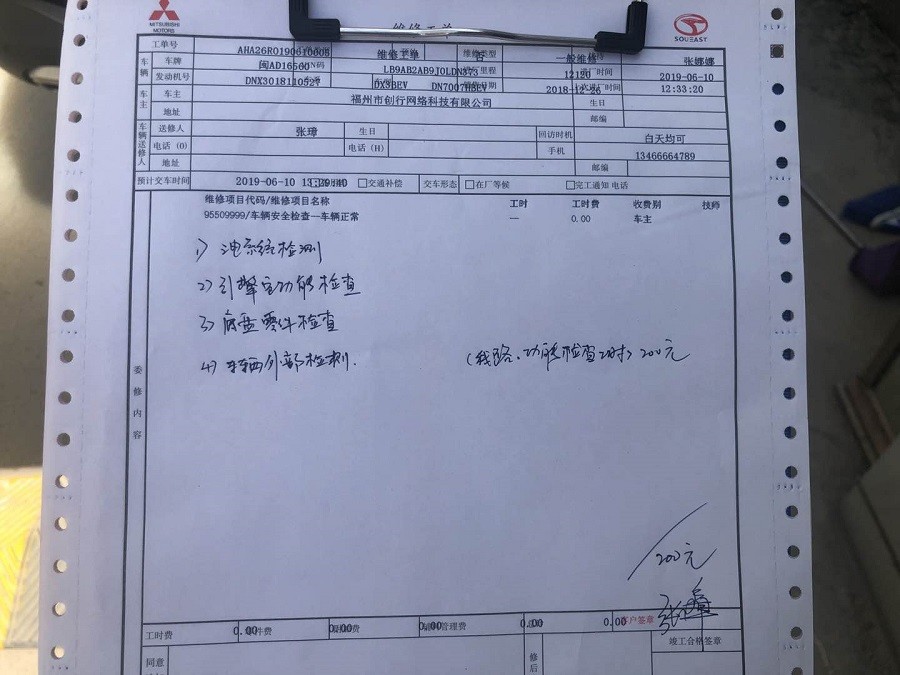 MITSUBISHI MOTORS
维修工单
SOUEAST
工单号 AHA26RO190610005 维修工单 否 维修类型 一般维修 张娜娜
车辆 车牌 闽AD16560 LB9AB2AB9J0LDN373 12120 2019-06-10
发动机号 DNX3018110527 DX3BEV DN7007HBEV 2018-12-26 12:33:20
车主 车主 福州市创行网络科技有限公司 生日
地址 邮编
车辆送修人 送修人 张璋 生日 回访时机 白天均可
电话(O) 电话(H) 手机 13466664789
地址 邮编
预计交车时间 2019-06-10 交通补偿 交车形态 在厂等候 完工通知 电话
维修项目代码/维修项目名称 工时 工时费 收费别 技师
95509999/车辆安全检查—车辆正常 — 0.00 车主
委修内容
2) 引擎室功能检查
3) 底盘零件检查
4) 车辆外部检测. (线路、功能检查工时) 200元
200元
张璋
工时费 0.00 0.00 管理费 0.00 0.00 客户签章
竣工合格签章
同意
修后